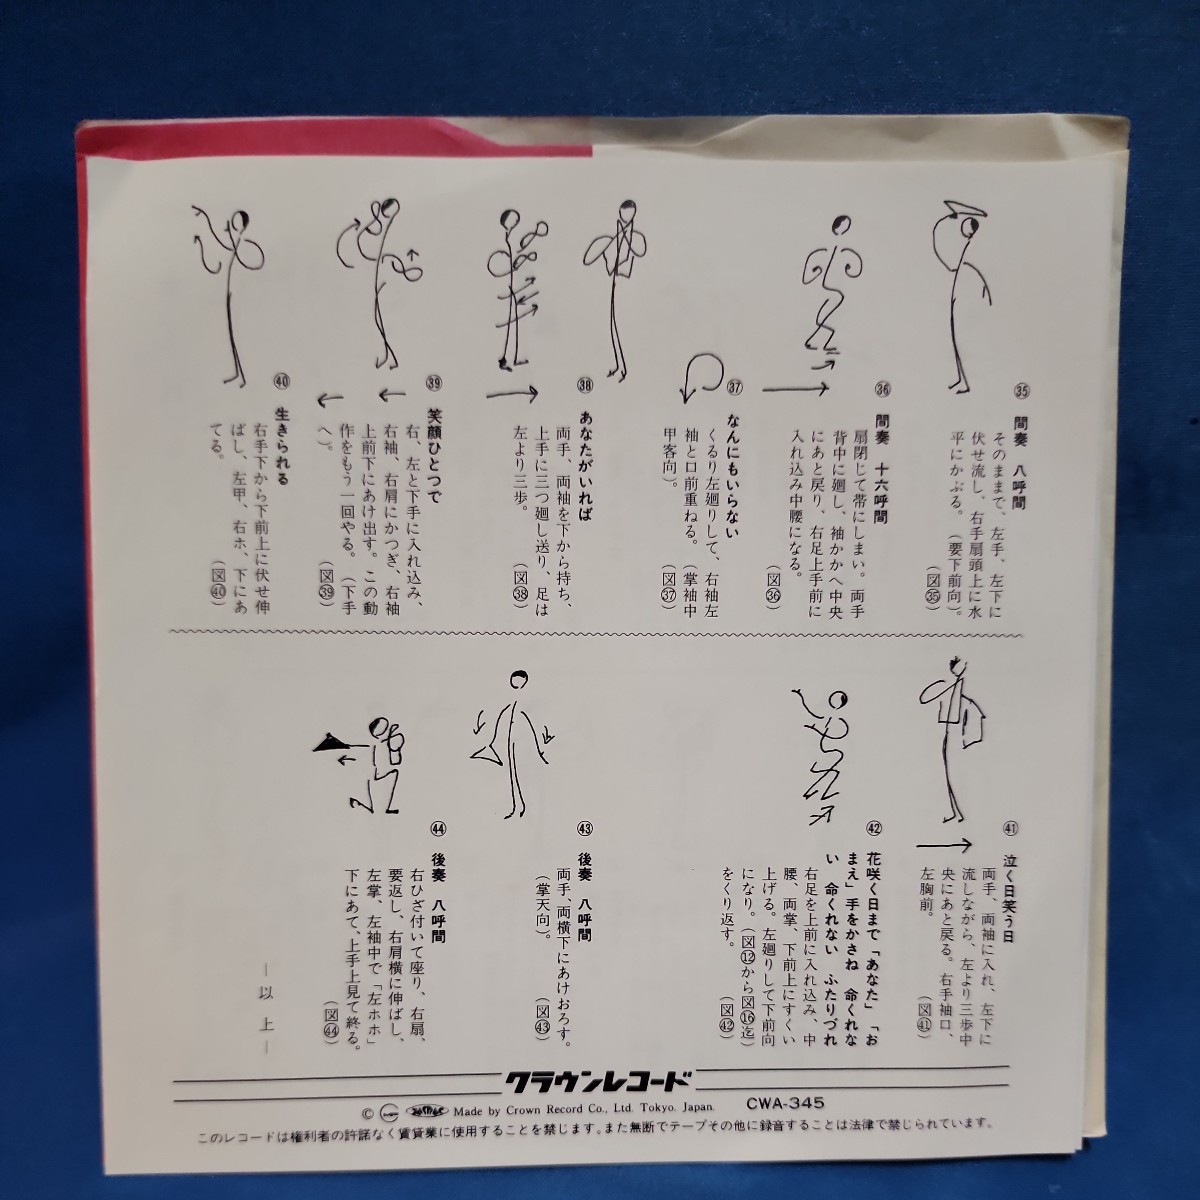 ㉟ 間奏 八呼間
そのままで、左手、左下に
伏せ流し、右手扇頭上に水
平にかぶる。(要下前向)。
(図㉟)
㊱ 間奏 十六呼間
扇閉じて帯にしまい。両手
背中に廻し、袖かかへ中央
にあと戻り、右足上手前に
入れ込み中腰になる。
(図㊱)
㊲ なんにもいらない
くるり左廻りして、右袖左
袖と口前重ねる。(掌袖中
甲客向)。
(図㊲)
㊳ あなたがいれば
両手、両袖を下から持ち、
上手に三つ廻し送り、足は
左より三歩。
(図㊳)
㊴ 笑顔ひとつで
右、左と下手に入れ込み、
右袖、右肩にかつぎ、右袖
上前下にあけ出す。この動
作をもう一回やる。(下手
へ)。
(図㊴)
㊵ 生きられる
右手下から下前上に伏せ伸
ばし、左甲、右ホ、下にあ
てる。
(図㊵)
㊶ 泣く日笑う日
両手、両袖に入れ、左下に
流しながら、左より三歩中
央にあと戻る。右手袖口、
左胸前。
(図㊶)
㊷ 花咲く日まで「あなた」「お
まえ」手をかさね 命くれな
い 命くれない ふたりづれ
右足を上前に入れ込み、中
腰、両掌、下前上にすくい
上げる。左廻りして下前向
になり。(図⑫から図⑯迄)
をくり返す。
(図㊷)
㊸ 後奏 八呼間
両手、両横下にあけおろす。
(掌天向)。
(図㊸)
㊹ 後奏 八呼間
右ひざ付いて座り、右扇、
要返し、右肩横に伸ばし、
左掌、左袖中で「左ホホ」
下にあて、上手上見て終る。
(図㊹)
—以上—
クラウンレコード
© Made by Crown Record Co., Ltd. Tokyo. Japan. CWA-345
このレコードは権利者の許諾なく賃貸業に使用することを禁じます。また無断でテープその他に録音することは法律で禁じられています。